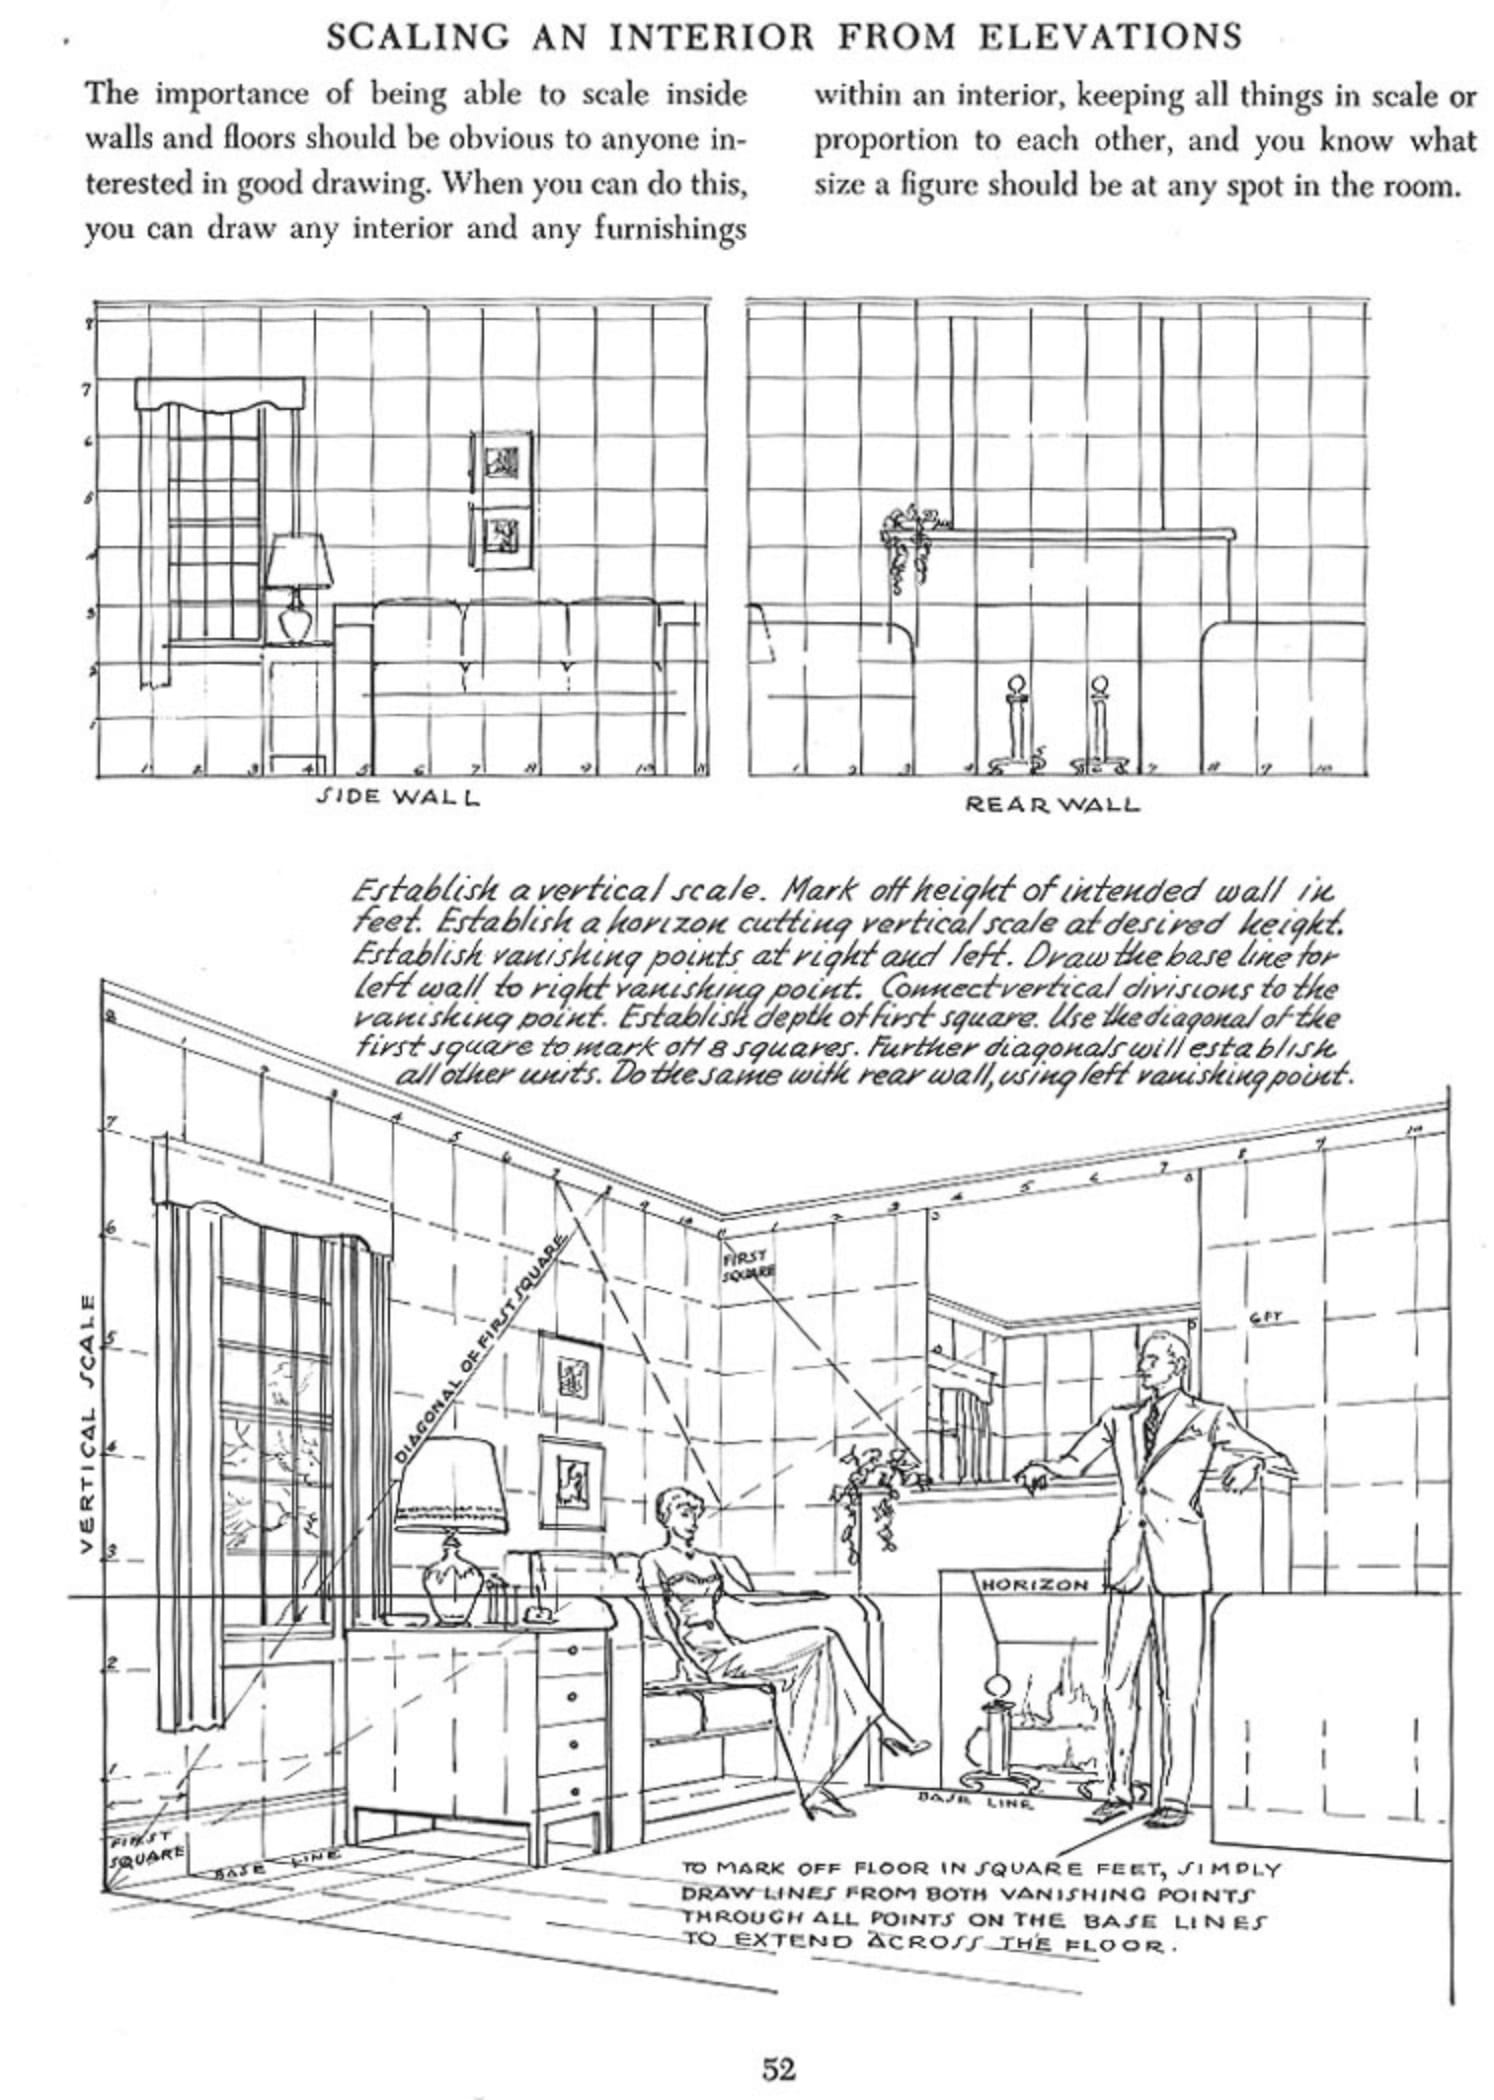 SCALING AN INTERIOR FROM ELEVATIONS
The importance of being able to scale inside
walls and floors should be obvious to anyone in-
terested in good drawing. When you can do this,
you can draw any interior and any furnishings
within an interior, keeping all things in scale or
proportion to each other, and you know what
size a figure should be at any spot in the room.
8
7
6
5
4
3
2
1
1 2 3 4 5 6 7 8 9 10 11
SIDE WALL
1 2 3 4 5 6 7 8 9 10
REAR WALL
Establish a vertical scale. Mark off height of intended wall in
feet. Establish a horizon cutting vertical scale at desired height.
Establish vanishing points at right and left. Draw the base line for
left wall to right vanishing point. Connect vertical divisions to the
vanishing point. Establish depth of first square. Use the diagonal of the
first square to mark off 8 squares. Further diagonals will establish
all other units. Do the same with rear wall, using left vanishing point.
8
7
6
5
4
3
2
1
VERTICAL SCALE
1 2 3 4 5 6 7 8 9 10 11
1 2 3 4 5 6 7 8 9 10
DIAGONAL OF FIRST SQUARE
FIRST
SQUARE
6 FT
HORIZON
BASE LINE
FIRST
SQUARE
BASE LINE
TO MARK OFF FLOOR IN SQUARE FEET, SIMPLY
DRAW LINES FROM BOTH VANISHING POINTS
THROUGH ALL POINTS ON THE BASE LINES
TO EXTEND ACROSS THE FLOOR.
52